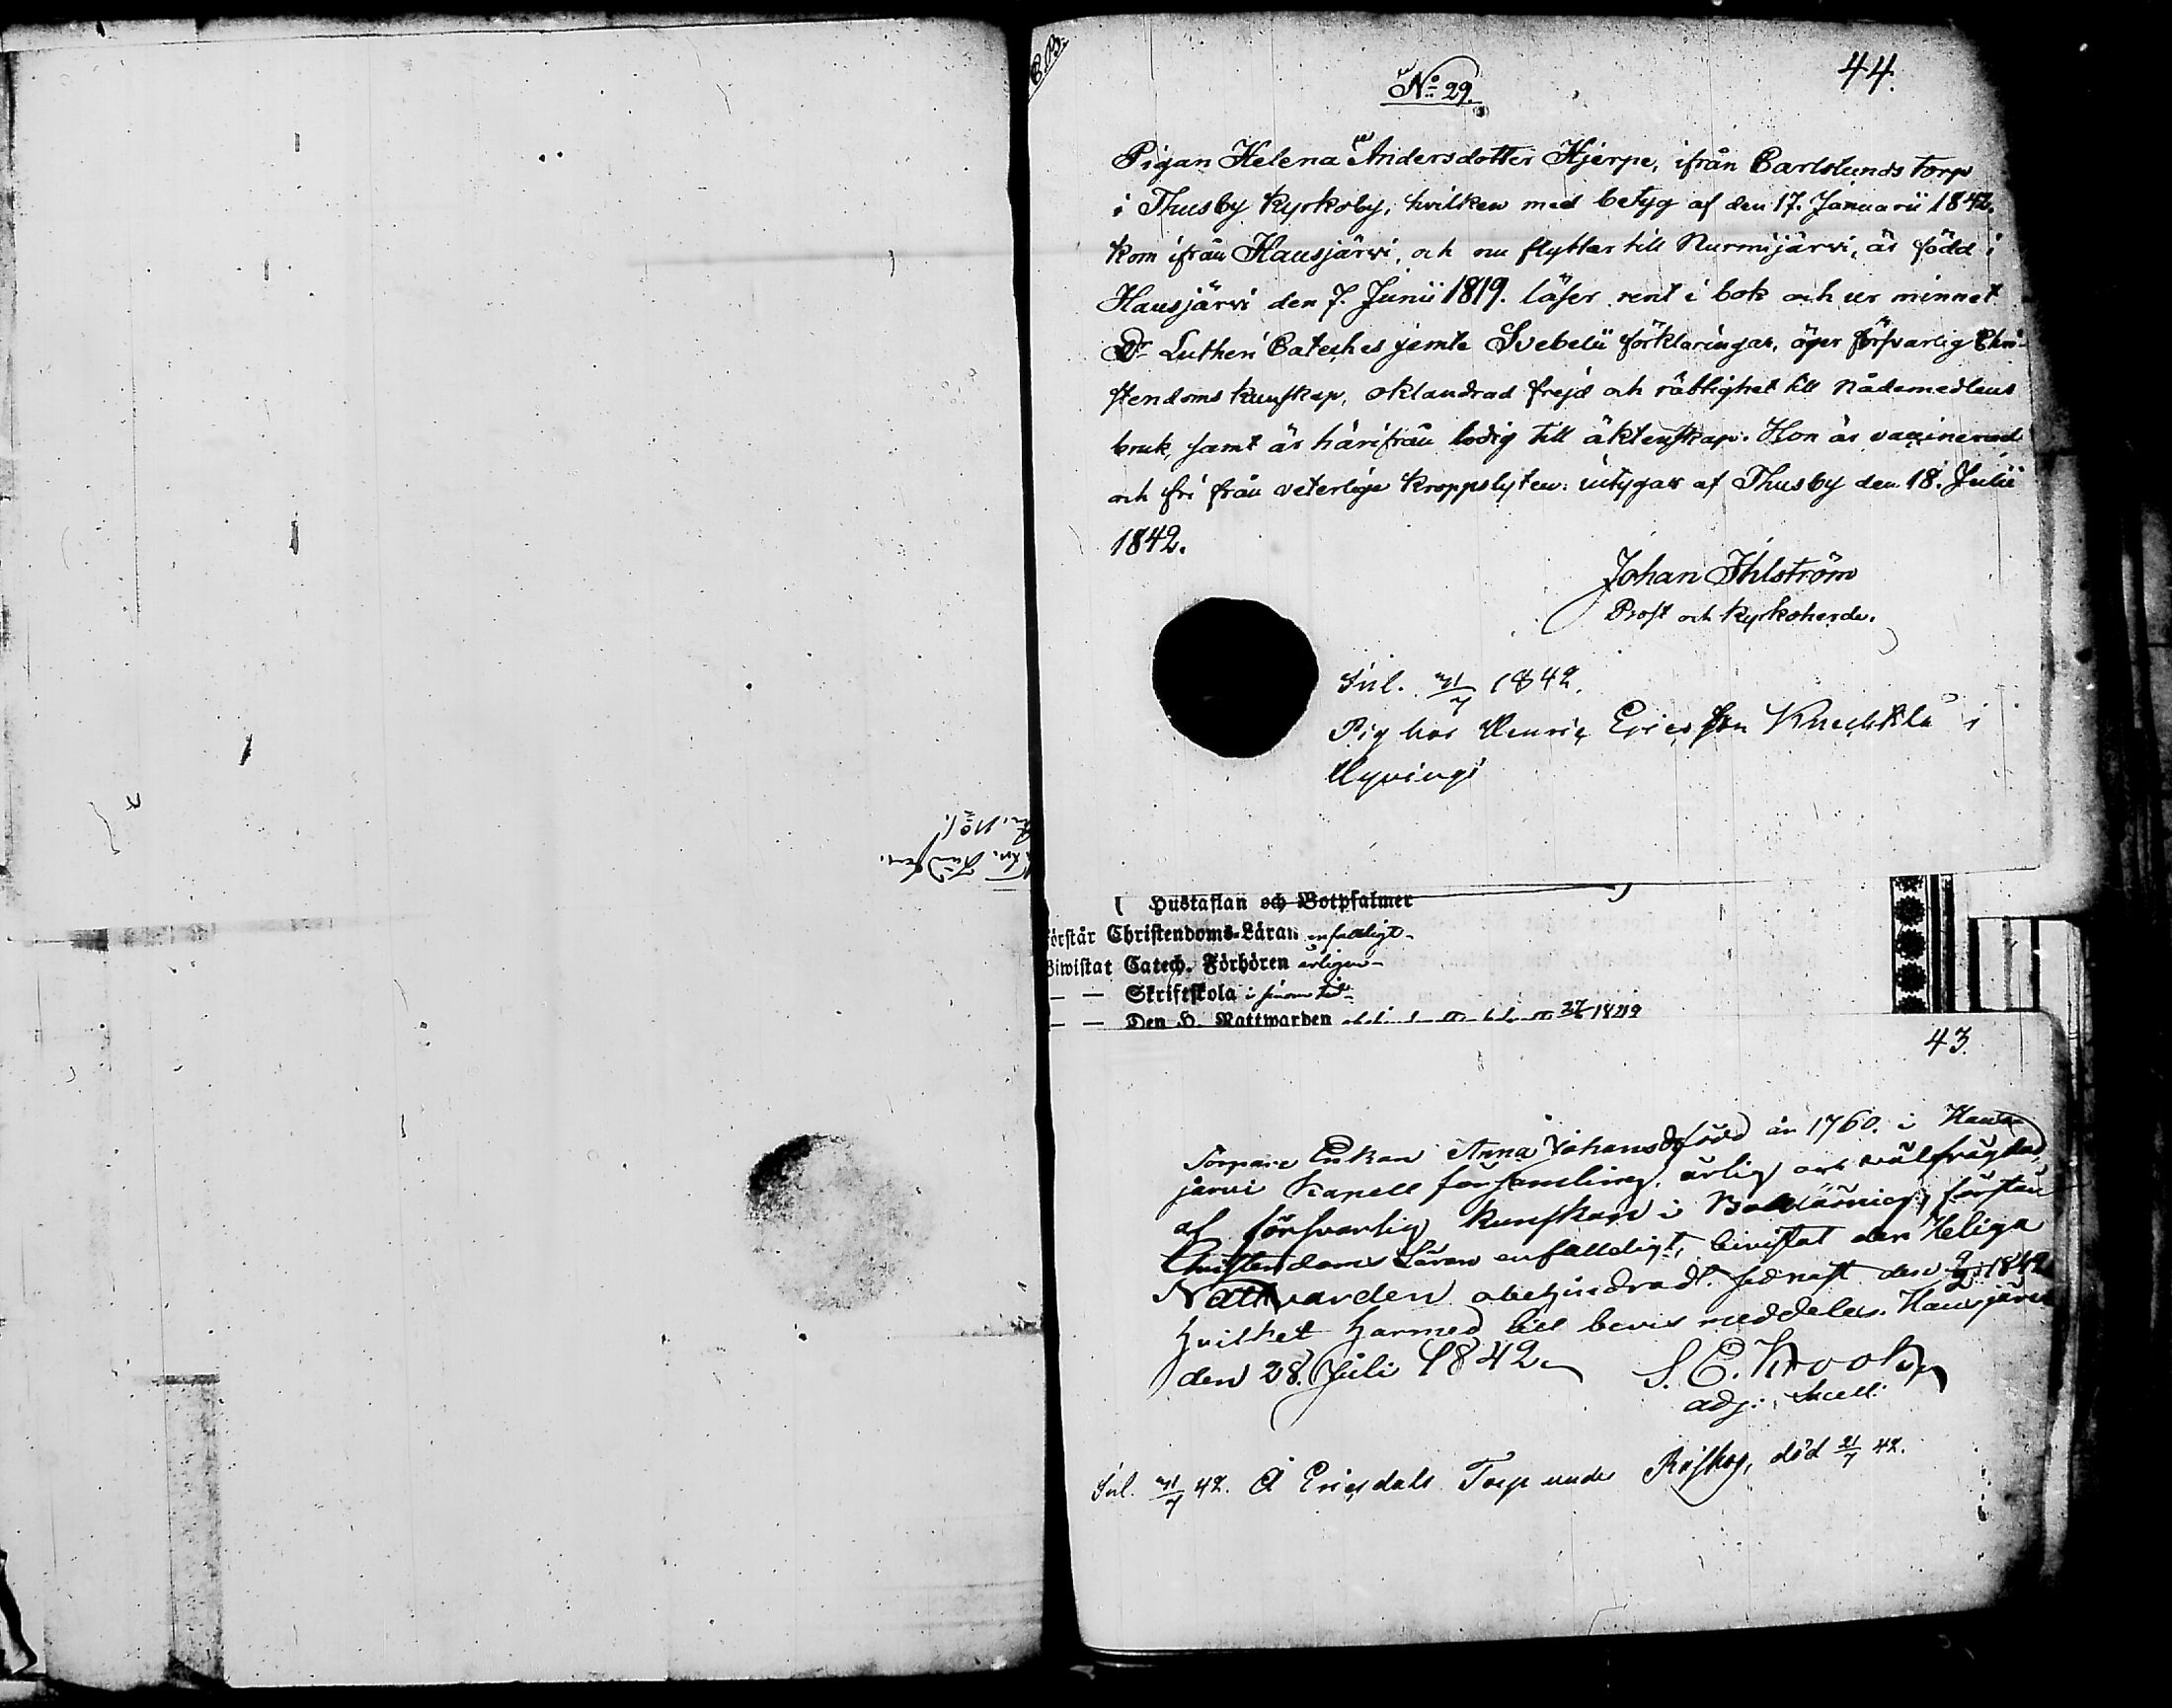 C.B.
44.
No 29.
Pigan Helena Andersdotter Hjerpe, ifrån Carlslunds torp
i Thusby Kyrkoby, hvilken med betyg af den 17. Januarii 1842.
kom ifrån Hausjärvi, och nu flyttar till Nurmijärvi, är född i
Hausjärvi den 7. Junii 1819. läser rent i bok och ur minnet
Dr Lutheri Cateches jemte Svebelii förklaringar, äger försvarlig Chri-
stendoms kunskap, oklandrad frejd och rättighet till Nådemedlens
bruk, samt är härifrån ledig till äktenskap. Hon är vaccinerad
och fri från veterlige kroppslyten: intygar af Thusby den 18. Julii
1842.
Johan Ihlström
Prost och Kyrkoherde.
Inl. 31/7 1842.
Pig hos Henric Ericsson Knecktila i
Hyvinge
Hustaflan och Botpsalmer
förstår Christendoms-Läran enfaldigt
Biwistat Catech. Förhören årligen
— — Skriftskola i sinom tid
— — Den H. Nattwarden
43.
Torpare Enkan Anna Johansdr född år 1760. i Haus-
järvi Kapell församling, ärlig och välfrägdad,
af försvarlig kunskap i Bokläsning, förstår
Christendoms Läran enfalldigt, bevistat den Heliga
Nattvarden obehindradt sednast den 1842
hvilket härmed till bevis meddelas. Hausjärvi
den 28. Juli 1842.
S. E. Krook
adj:
Inl. 31/7 42. Å Ericsdals Torp under Röskog, död 21/7 42.